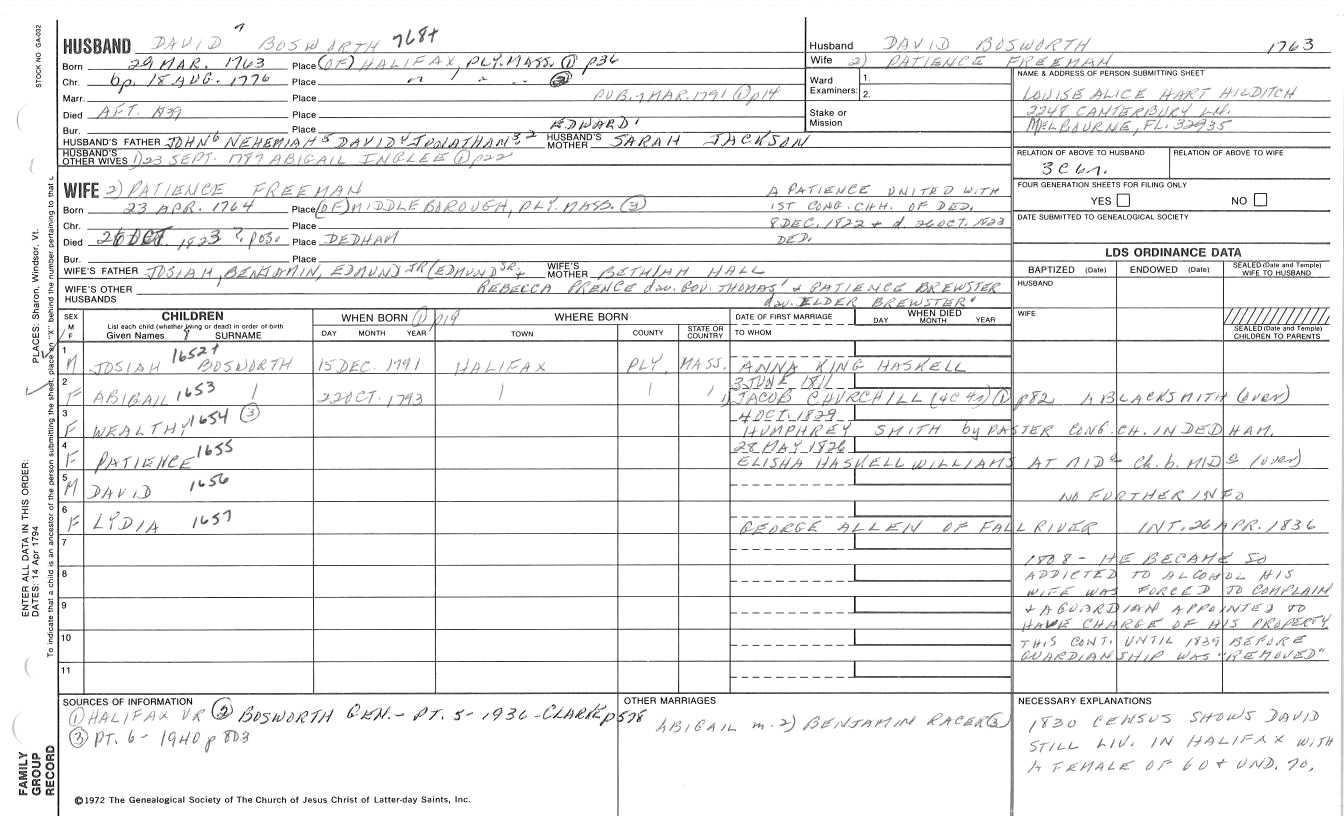 STOCK NO. GA-002
HUSBAND DAVID 7 BOSWORTH 768+
Born 29 MAR. 1763 Place (OF) HALIFAX, PLY. MASS. ① p36
Chr. bp. 18 AUG. 1776 Place " " " ②
Marr. Place PUB. 7 MAR. 1791 ① p14
Died AFT. 1839 Place
Bur. Place EDWARD 1
HUSBAND'S FATHER JOHN 6 NEHEMIAH 5 DAVID 4 JONATHAN 3 2 HUSBAND'S MOTHER SARAH JACKSON
HUSBAND'S OTHER WIVES 1) 23 SEPT. 1787 ABIGAIL INGLEE ① p22
Husband DAVID BOSWORTH 1763
Wife 2) PATIENCE FREEMAN
Ward Examiners: 1.
2.
Stake or Mission
NAME & ADDRESS OF PERSON SUBMITTING SHEET
LOUISE ALICE HART HILDITCH
2248 CANTERBURY LN.
MELBOURNE, FL. 32935
RELATION OF ABOVE TO HUSBAND RELATION OF ABOVE TO WIFE
3C 6r.
FOUR GENERATION SHEETS FOR FILING ONLY
YES NO
DATE SUBMITTED TO GENEALOGICAL SOCIETY
WIFE 2) PATIENCE FREEMAN
Born 23 APR. 1764 Place (OF) MIDDLEBOROUGH, PLY. MASS. ③
Chr. Place
Died 26 OCT. 1823 ?. p030 Place DEDHAM
Bur. Place
A PATIENCE UNITED WITH
1ST CONG. CHH. OF DED.
8 DEC. 1822 + d. 26 OCT. 1823
DED.
WIFE'S FATHER JOSIAH, BENJAMIN, EDMUND JR (EDMUND SR. + WIFE'S MOTHER BETHIAH HALL
REBECCA PRENCE dau. GOV. THOMAS 1 + PATIENCE BREWSTER
dau. ELDER BREWSTER 1
WIFE'S OTHER HUSBANDS
LDS ORDINANCE DATA
BAPTIZED (Date) ENDOWED (Date) SEALED (Date and Temple) WIFE TO HUSBAND
HUSBAND
WIFE
SEALED (Date and Temple) CHILDREN TO PARENTS
SEX M / F CHILDREN
List each child (whether living or dead) in order of birth
Given Names SURNAME
WHEN BORN ① p19
DAY MONTH YEAR
WHERE BORN
TOWN COUNTY STATE OR COUNTRY
DATE OF FIRST MARRIAGE
TO WHOM
WHEN DIED
DAY MONTH YEAR
1 M JOSIAH 1652+ BOSWORTH 15 DEC. 1791 HALIFAX PLY. MASS. ANNA KING HASKELL
2 F ABIGAIL 1653 22 OCT. 1793 3 JUNE 1811
1) JACOB CHURCHILL (4C 4r) ① p82 A BLACKSMITH (over)
3 F WEALTHY 1654 ③ 4 OCT. 1829
HUMPHREY SMITH by PASTER CONG. CH. IN DEDHAM.
4 F PATIENCE 1655 28 MAY 1826
ELISHA HASKELL WILLIAMS AT MIDd Ch. b. MIDd (over)
5 M DAVID 1656 NO FURTHER INFO
6 F LYDIA 1657 GEORGE ALLEN OF FALL RIVER INT. 26 APR. 1836
7
8
9
10
11
1808 - HE BECAME SO
ADDICTED TO ALCOHOL HIS
WIFE WAS FORCED TO COMPLAIN
+ A GUARDIAN APPOINTED TO
HAVE CHARGE OF HIS PROPERTY
THIS CONT. UNTIL 1839 BEFORE
GUARDIANSHIP WAS "REMOVED"
SOURCES OF INFORMATION
① HALIFAX VR ② BOSWORTH GEN. - PT. 5 - 1936 - CLARKE p578
③ PT. 6 - 1940 p 803
OTHER MARRIAGES
ABIGAIL m. 2) BENJAMIN RACER ③
NECESSARY EXPLANATIONS
1830 CENSUS SHOWS DAVID
STILL LIV. IN HALIFAX WITH
A FEMALE OF 60 + UND. 70.
©1972 The Genealogical Society of The Church of Jesus Christ of Latter-day Saints, Inc.
PLACES: Sharon, Windsor, Vt.
ENTER ALL DATA IN THIS ORDER:
DATES: 14 Apr 1794
To indicate that a child is an ancestor of the person submitting the sheet, place an "X" behind the number pertaining to that c
FAMILY GROUP RECORD